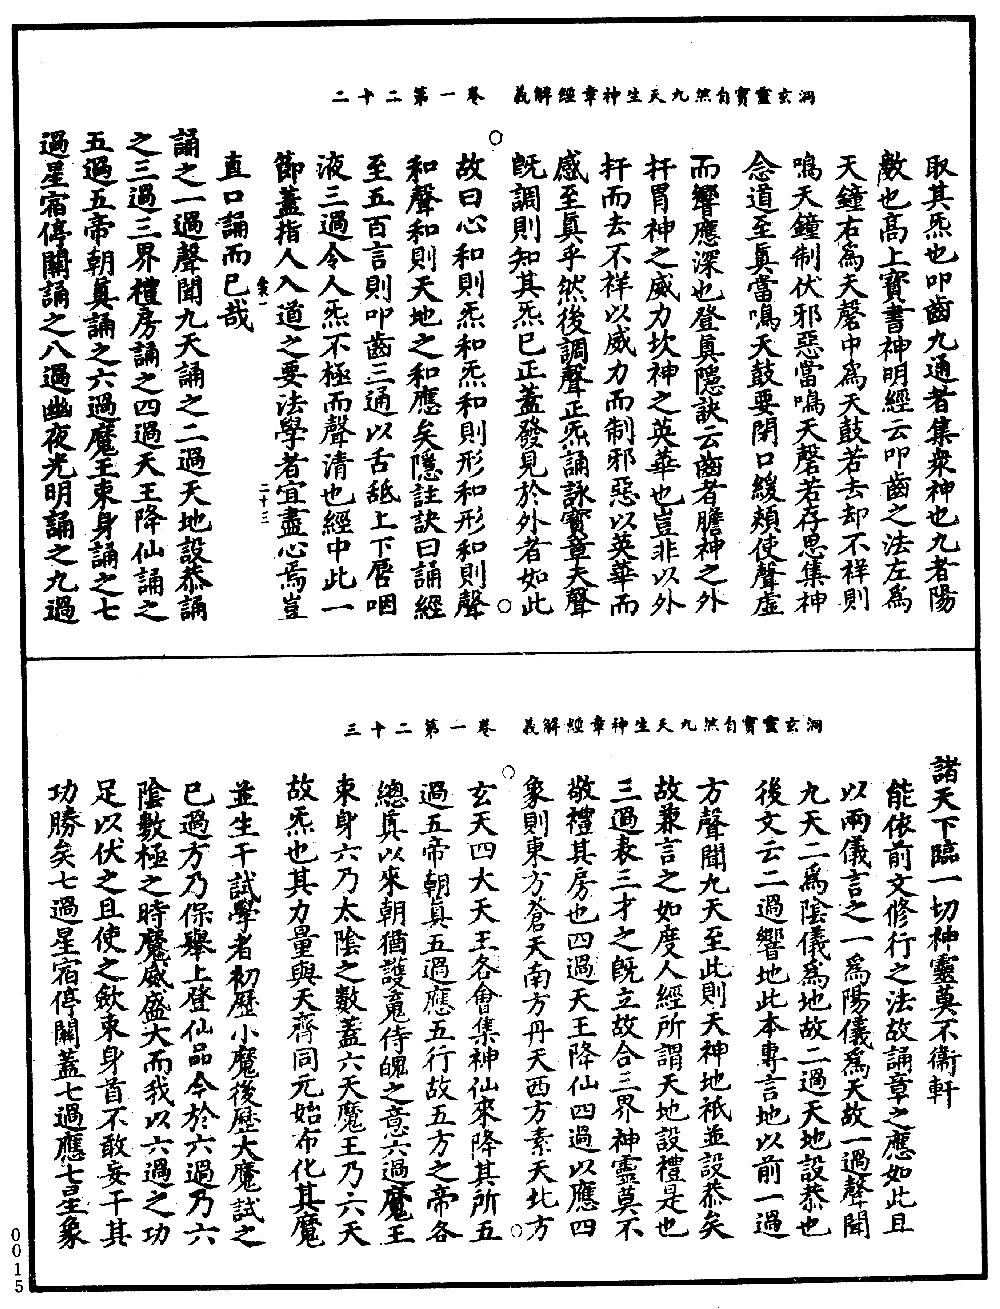 洞玄靈寶自然九天生神章經解義　卷一第二十二
取其炁也叩齒九通者集衆神也九者陽
敷也高上寶書神明經云叩齒之法左爲
天鐘右爲天磬中爲天鼓若去却不祥則
鳴天鐘制伏邪惡當鳴天磬若存思集神
念道至眞當鳴天鼓要閉口緩頰使聲虛
而響應深也登眞隱訣云齒者膽神之外
扞胃神之威力坎神之英華也豈非以外
扞而去不祥以威力而制邪惡以英華而
感至眞乎然後調聲正炁誦詠寶章夫聲
旣調則知其炁已正蓋發見於外者如此
故曰心和則炁和炁和則形和形和則聲
和聲和則天地之和應矣隱註訣曰誦經
至五百言則叩齒三通以舌舐上下脣咽
液三過令人炁不極而聲清也經中此一
節蓋指人入道之要法學者宜盡心焉豈
直口誦而已哉
二十三
誦之一過聲聞九天誦之二過天地設恭誦
之三過三界禮房誦之四過天王降仙誦之
五過五帝朝眞誦之六過魔王束身誦之七
過星宿停關誦之八過幽夜光明誦之九過
洞玄靈寶自然九天生神章經解義　卷一第二十三
諸天下臨一切神靈莫不衞軒
能依前文修行之法故誦章之應如此且
以兩儀言之一爲陽儀爲天故一過聲聞
九天二爲陰儀爲地故二過天地設恭也
後文云二過響地此本專言地以前一過
方聲聞九天至此則天神地祇並設恭矣
故兼言之如度人經所謂天地設禮是也
三過表三才之旣立故合三界神靈莫不
敬禮其房也四過天王降仙四過以應四
象則東方蒼天南方丹天西方素天北方
玄天四大天王各會集神仙來降其所五
過五帝朝眞五過應五行故五方之帝各
總眞以來朝猶護䰟侍魄之意六過魔王
束身六乃太陰之數蓋六天魔王乃六天
故炁也其力量與天齊同元始布化其魔
並生干試學者初歷小魔後歷大魔試之
已過方乃保舉上登仙品今於六過乃六
陰數極之時魔威盛大而我以六過之功
足以伏之且使之歛束身首不敢妄干其
功勝矣七過星宿停關蓋七過應七星象
0015